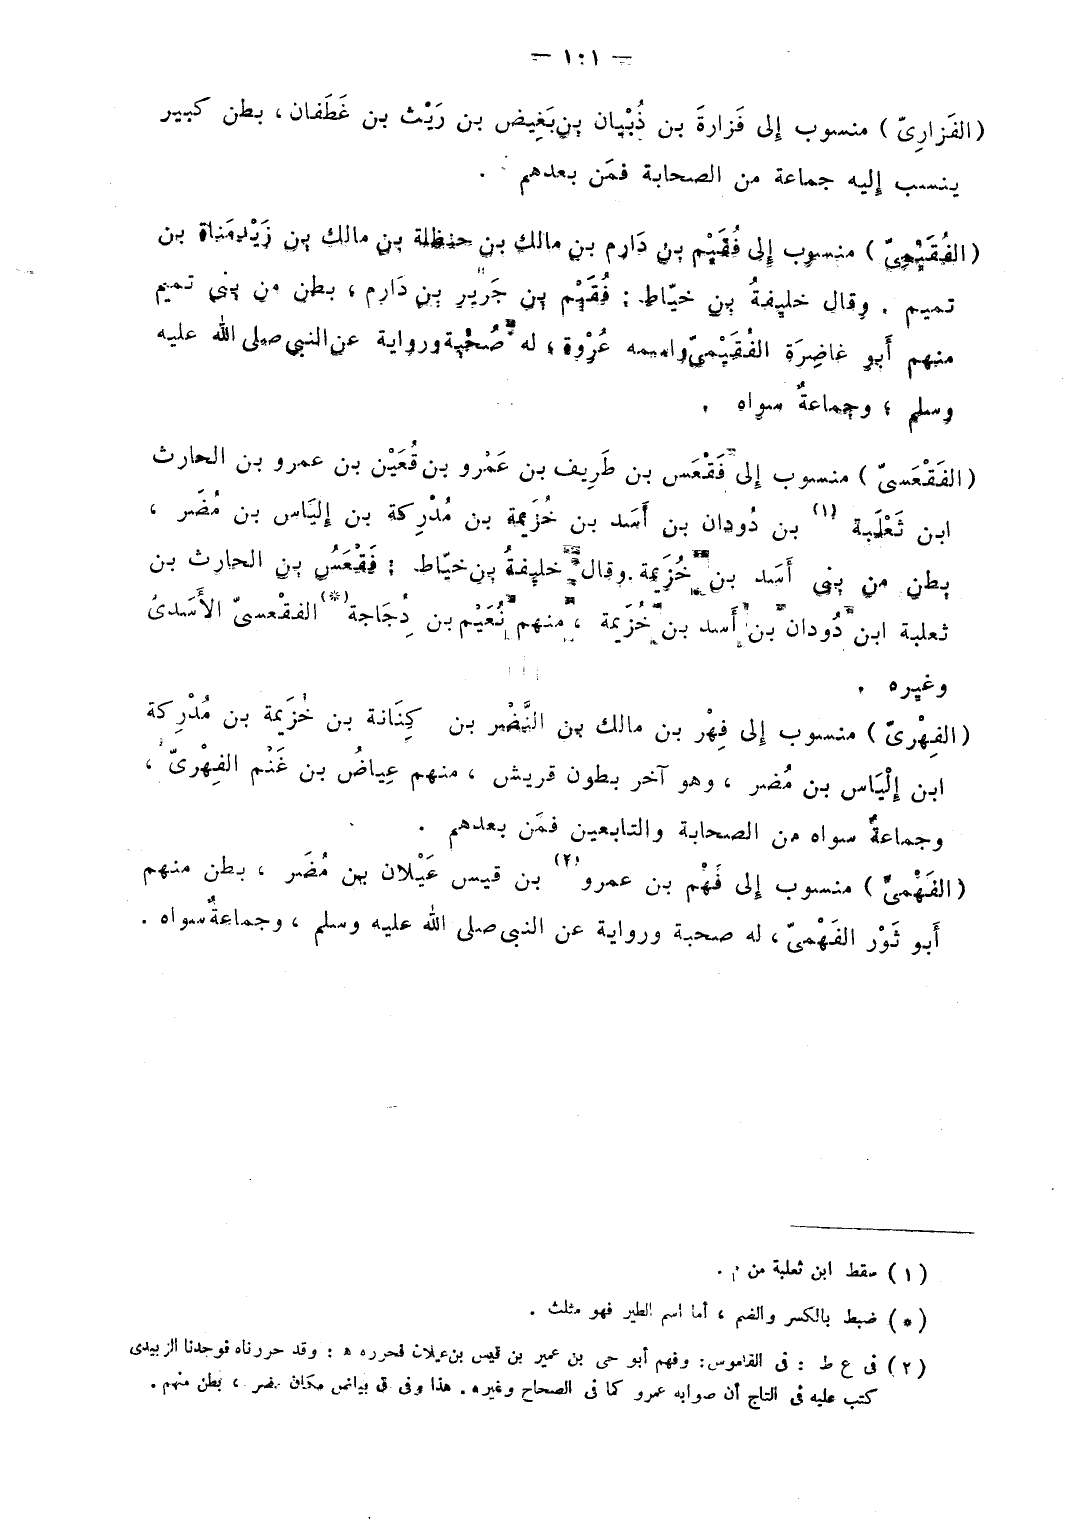 — ١٠١ —
( الفَزارِىّ ) منسوب إلى فَزارةَ بن ذُبْيان بن بَغِيض بن رَيْث بن غَطَفان ، بطن كبير
ينسب إليه جماعة من الصحابة فمَن بعدهم .
( الفُقَيْمِىّ ) منسوب إلى فُقَيْم بن دَارم بن مالك بن حنظلة بن مالك بن زَيْد مَناة بن
تميم . وقال خليفةُ بن خيّاط : فُقَيْم بن جَرِيرِ بن دَارم ، بطن من بنى تميم
منهم أَبو غاضِرَة الفُقَيْمىّ واسمه عُرْوة ؛ له صُحْبة ورواية عن النبى صلى الله عليه
وسلم ؛ وجماعةٌ سواه .
( الفَقْعَسىّ ) منسوب إلى فَقْعَس بن طَرِيف بن عَمْرو بن قُعَيْن بن عمرو بن الحارث
ابن ثَعْلَبة (١) بن دُودان بن أَسَد بن خُزَيمة بن مُدْرِكة بن إلْيَاس بن مُضَر ،
بطن من بنى أَسَد بن خُزَيمة . وقال خليفةُ بن خيّاط : فَقْعَسُ بن الحارث بن
ثعلبة ابن دُودان بن أَسد بن خُزَيمة ، منهم نُعَيْم بن دِجَاجة (*) الفقعسىّ الأَسَدىُّ
وغيره .
( الفِهْرِىّ ) منسوب إلى فِهْر بن مالك بن النَّضْر بن كِنَانة بن خُزَيمة بن مُدْرِكة
ابن إلْيَاس بن مُضر ، وهو آخر بطون قريش ، منهم عِياضُ بن غَنْم الفِهْرىّ ،
وجماعةٌ سواه من الصحابة والتابعين فمَن بعدهم .
( الفَهْمىّ ) منسوب إلى فَهْم بن عمرو (٢) بن قيس عَيْلان بن مُضَر ، بطن منهم
أَبو ثَوْر الفَهْمىّ ، له صحبة ورواية عن النبى صلى الله عليه وسلم ، وجماعةٌ سواه .
( ١ ) سقط ابن ثعلبة من م .
( * ) ضبط بالكسر والضم ، أما اسم الطير فهو مثلث .
( ٢ ) فى ع ط : فى القاموس : وفهم أبو حى بن عمير بن قيس بن عيلان فحرره ه : وقد حررناه فوجدنا الزبيدى
كتب عليه فى التاج أن صوابه عمرو كما فى الصحاح وغيره . هذا وفى ق بياض مكان مضر ، بطن منهم .